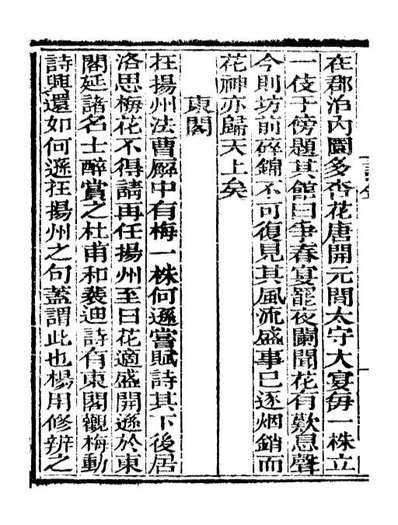 在郡治內園多杏花唐開元間太守大宴每一株立
一伎于傍題其館曰爭春宴罷夜闌聞花有歎息聲
今則坊前碎錦不可復見其風流盛事已逐烟銷而
花神亦歸天上矣
東閣
在揚州法曹廨中有梅一株何遜嘗賦詩其下後居
洛思梅花不得請再任揚州至日花適盛開遜於東
閣延諸名士醉賞之杜甫和裴迪詩有東閣觀梅動
詩興還如何遜在揚州之句蓋謂此也楊用修辨之